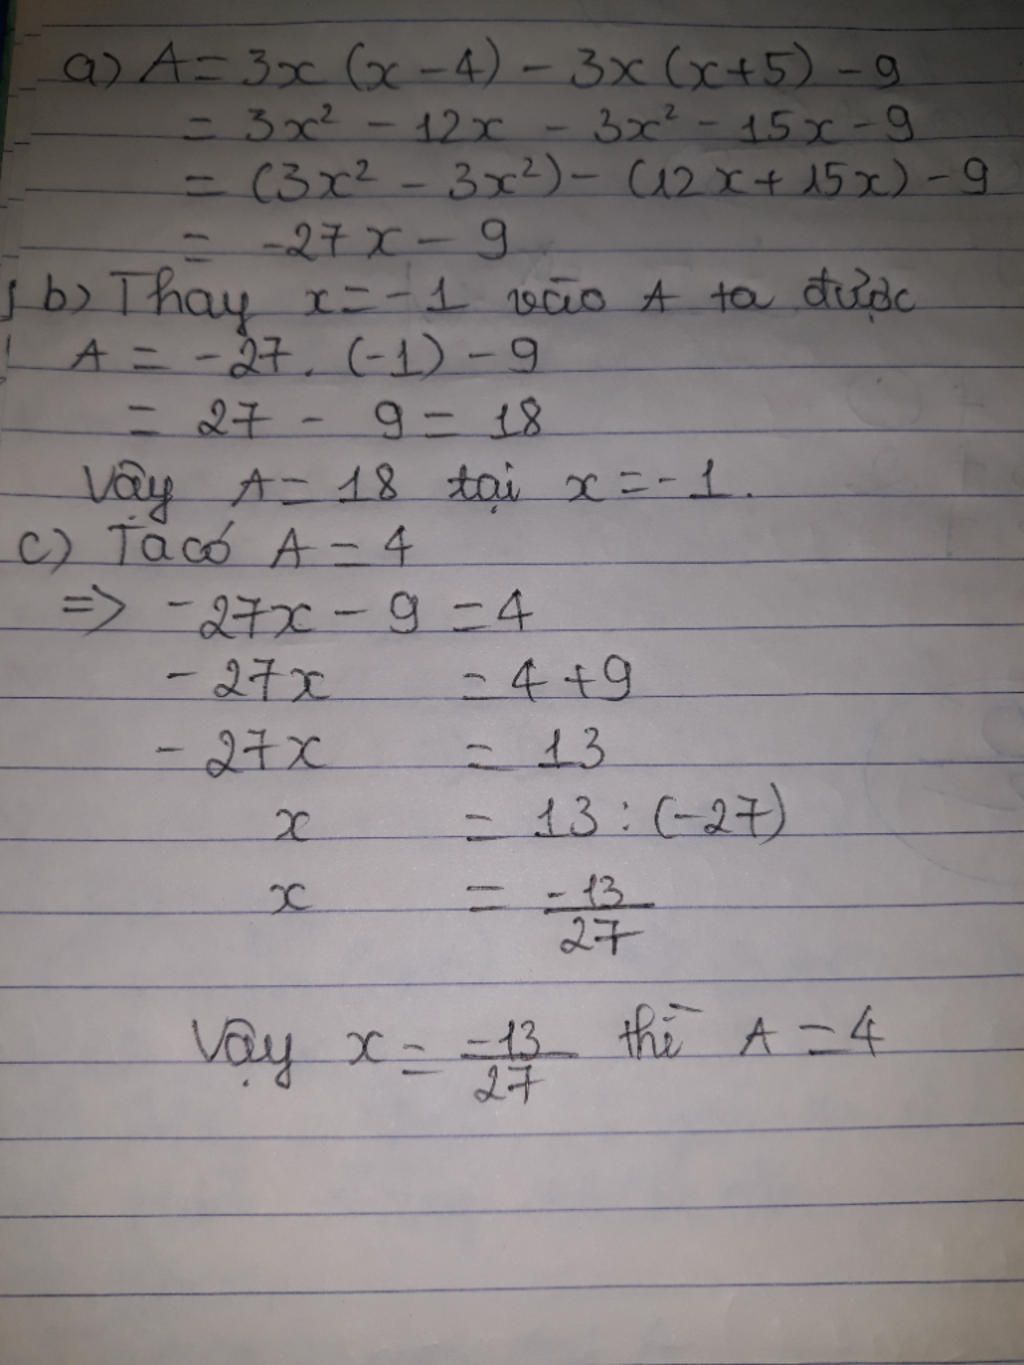 a) A = 3x (x - 4) - 3x (x+5) - 9
= 3x² - 12x - 3x² - 15x - 9
= (3x² - 3x²) - (12x + 15x) - 9
= -27x - 9
b) Thay x = -1 vào A ta được
A = -27. (-1) - 9
= 27 - 9 = 18
Vậy A = 18 tại x = -1.
c) Ta có A = 4
=> -27x - 9 = 4
-27x = 4 + 9
-27x = 13
x = 13 : (-27)
x = -13/27
Vậy x = -13/27 thì A = 4